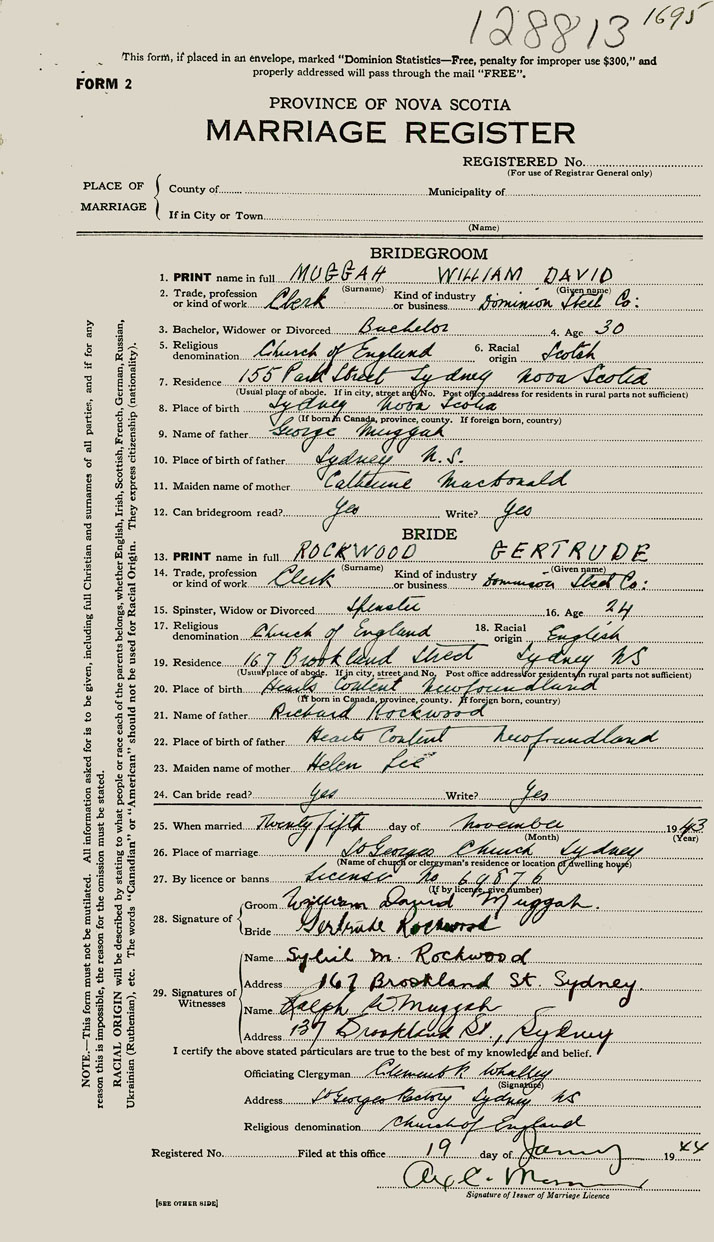 128813 1695
This form, if placed in an envelope, marked "Dominion Statistics—Free, penalty for improper use $300," and
properly addressed will pass through the mail "FREE".
FORM 2
PROVINCE OF NOVA SCOTIA
MARRIAGE REGISTER
REGISTERED No.
(For use of Registrar General only)
PLACE OF MARRIAGE
County of Municipality of
If in City or Town
(Name)
BRIDEGROOM
1. PRINT name in full MUGGAH WILLIAM DAVID
(Surname) (Given name)
2. Trade, profession or kind of work Clerk Kind of industry or business Dominion Steel Co:
3. Bachelor, Widower or Divorced Bachelor 4. Age 30
5. Religious denomination Church of England 6. Racial origin Scotch
7. Residence 155 Park Street Sydney Nova Scotia
(Usual place of abode. If in city, street and No. Post office address for residents in rural parts not sufficient)
8. Place of birth Sydney Nova Scotia
(If born in Canada, province, county. If foreign born, country)
9. Name of father George Muggah
10. Place of birth of father Sydney N.S.
11. Maiden name of mother Catherine MacDonald
12. Can bridegroom read? Yes Write? Yes
BRIDE
13. PRINT name in full ROCKWOOD GERTRUDE
(Surname) (Given name)
14. Trade, profession or kind of work Clerk Kind of industry or business Dominion Steel Co:
15. Spinster, Widow or Divorced Spinster 16. Age 24
17. Religious denomination Church of England 18. Racial origin English
19. Residence 167 Brookland Street Sydney NS
(Usual place of abode. If in city, street and No. Post office address for residents in rural parts not sufficient)
20. Place of birth Hearts Content Newfoundland
(If born in Canada, province, county. If foreign born, country)
21. Name of father Richard Rockwood
22. Place of birth of father Hearts Content Newfoundland
23. Maiden name of mother Helen
24. Can bride read? Yes Write? Yes
25. When married Twenty fifth day of November 1943
(Month) (Year)
26. Place of marriage St Georges Church Sydney
(Name of church or clergyman's residence or location of dwelling house)
27. By licence or banns License No 64876
(If by licence, give number)
28. Signature of
Groom William David Muggah.
Bride Gertrude Rockwood
29. Signatures of Witnesses
Name Sybil M. Rockwood
Address 167 Brookland St. Sydney
Name Ralph Muggah
Address 137 Brookland St., Sydney
I certify the above stated particulars are true to the best of my knowledge and belief.
Officiating Clergyman Clement Whalley
(Signature)
Address St Georges Rectory Sydney NS
Religious denomination Church of England
Registered No. Filed at this office 19 day of 1944
Signature of Issuer of Marriage Licence
[SEE OTHER SIDE]
NOTE.—This form must not be mutilated. All information asked for is to be given, including full Christian and surnames of all parties, and if for any
reason this is impossible, the reason for the omission must be stated.
RACIAL ORIGIN will be described by stating to what people or race each of the parents belongs, whether English, Irish, Scottish, French, German, Russian,
Ukrainian (Ruthenian), etc. The words "Canadian" or "American" should not be used for Racial Origin. They express citizenship (nationality).